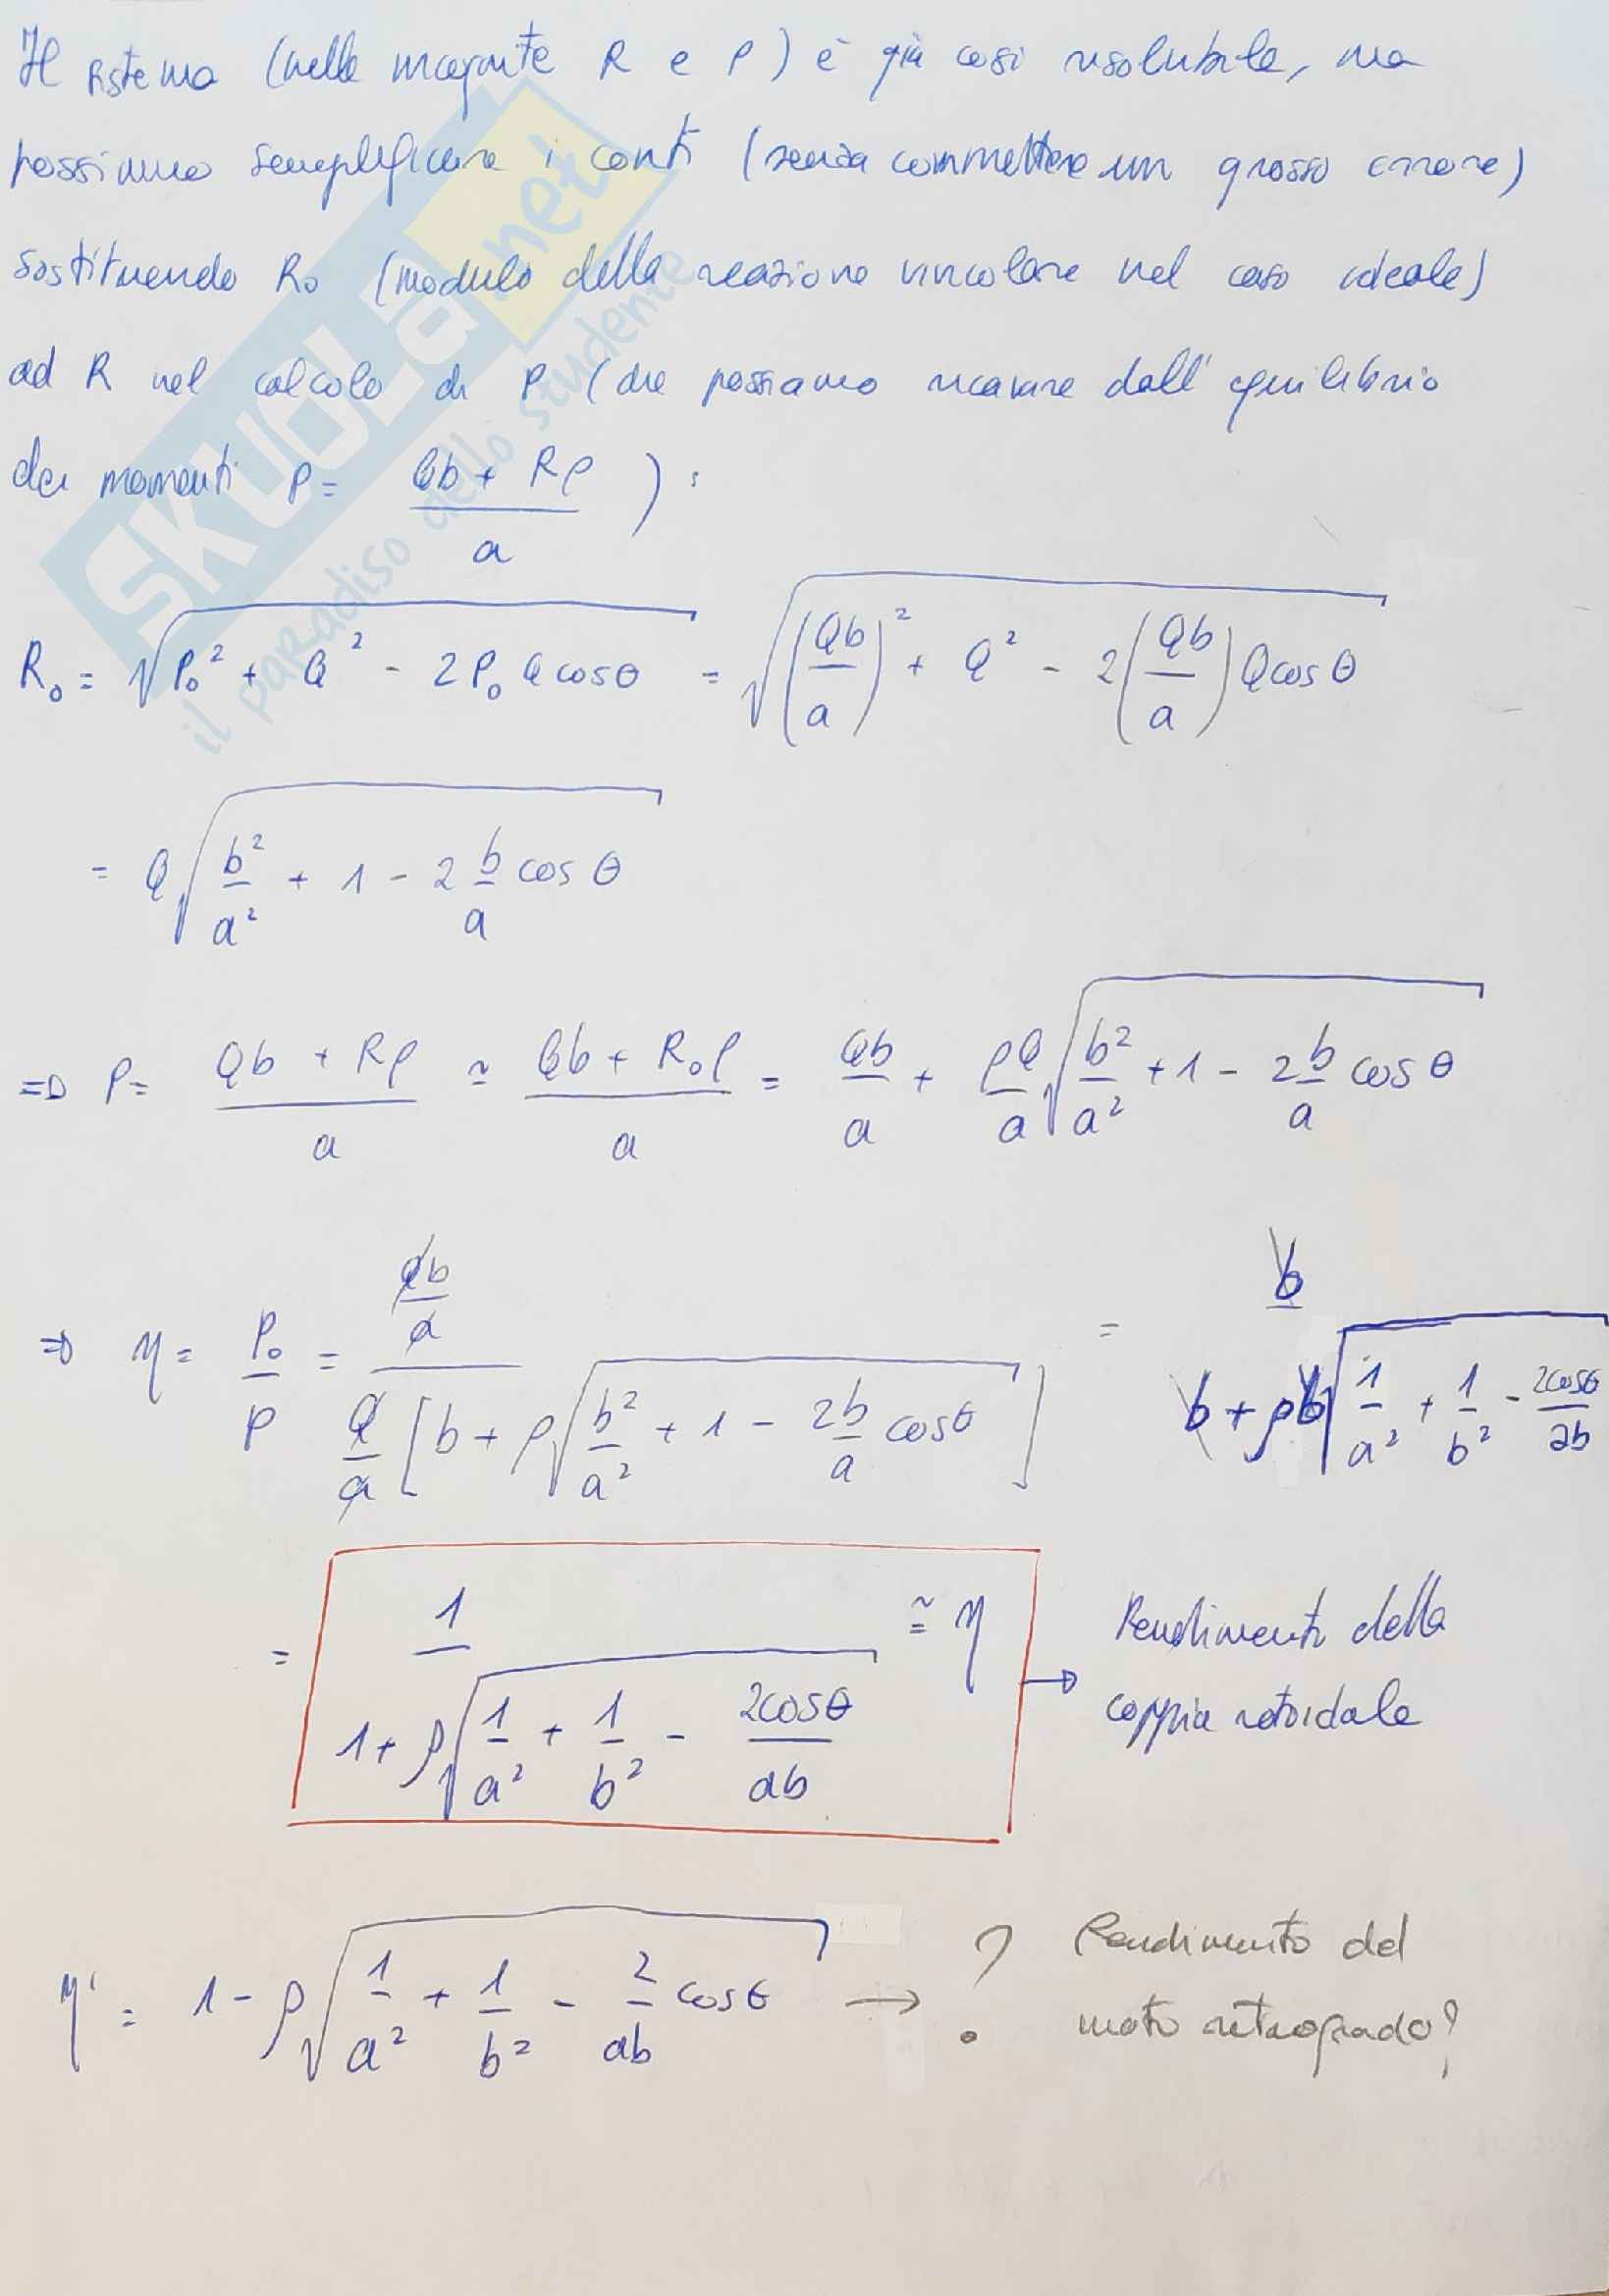 Il sistema (nelle incognite R e P) è già così risolubile, ma
possiamo semplificare i conti (senza commettere un grosso errore)
sostituendo R₀ (modulo della reazione vincolare nel caso ideale)
ad R nel calcolo di P (che possiamo ricavare dall'equilibrio
dei momenti P = (Qb + Rρ)/a ) :
R₀ = √(P₀² + Q² - 2P₀Q cosθ) = √((Qb/a)² + Q² - 2(Qb/a)Q cosθ)
= Q√(b²/a² + 1 - 2 b/a cosθ)
=> P = (Qb + Rρ)/a ≃ (Qb + R₀ρ)/a = Qb/a + ρQ/a √(b²/a² + 1 - 2 b/a cosθ)
=> η = P₀/P = (Qb/a)/(Q/a [b + ρ√(b²/a² + 1 - 2b/a cosθ)]) = b/(b + ρb√(1/a² + 1/b² - 2cosθ/ab))
= 1/(1 + ρ√(1/a² + 1/b² - 2cosθ/ab)) ≅ η → Rendimento della
coppia rotoidale
η' = 1 - ρ√(1/a² + 1/b² - 2/ab cosθ) → ? Rendimento del
moto retrogrado?
SKUOLa.net
il paradiso dello studente